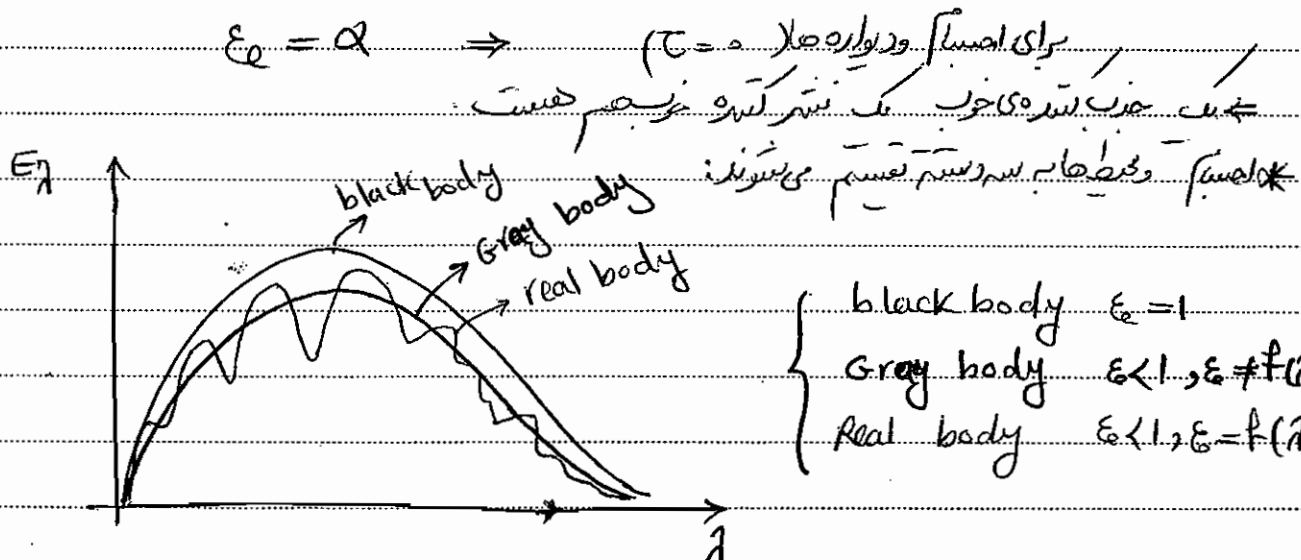 εe = α ⇒ برای اجسام و دیواره ها (τ = 0)
⇐ یک جذب کننده ی خوب یک نشر کننده خوب هم هست.
* اجسام و محیط ها به سه دسته تقسیم می شوند:
Eλ
black body
Gray body
real body
black body εe = 1
Gray body ε<1, ε ≠ f(λ
Real body ε<1, ε = f(λ
λ